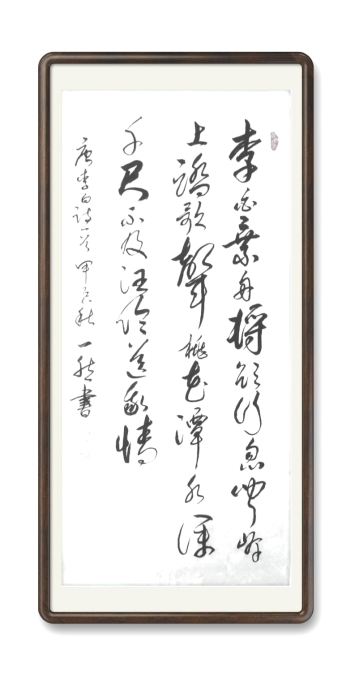 李白乘舟將欲行忽聞岸
上踏歌聲桃花潭水深
千尺不及汪倫送我情
唐李白詩一首 甲辰秋 一 書